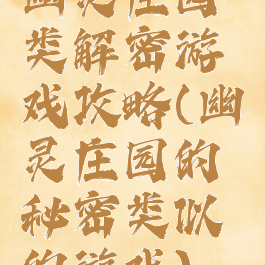 幽灵庄园
类解密游
戏攻略(幽
灵庄园的
秘密类似
的游戏)